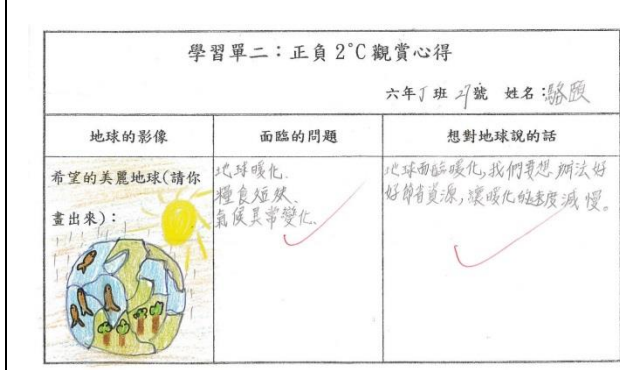 學習單二：正負 2°C 觀賞心得
六年丁班 27號 姓名：駱頤
地球的影像
面臨的問題
想對地球說的話
希望的美麗地球(請你
畫出來)：
地球暖化、
糧食短缺、
氣侯異常變化、
地球面臨暖化，我們要想辦法好
好節省資源，讓暖化的速度減慢。